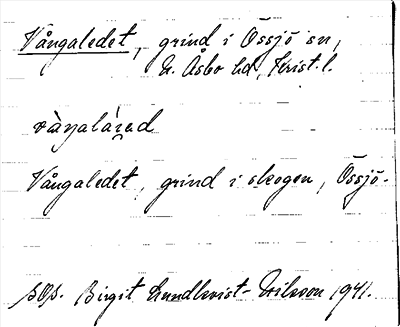 Vångaledet, grind i Össjö sn,
N. Åsbo hd, Krist. l.
Vångaledet, grind i skogen, Össjö.
SOS. Birgit Lundkvist-Eriksson 1941.